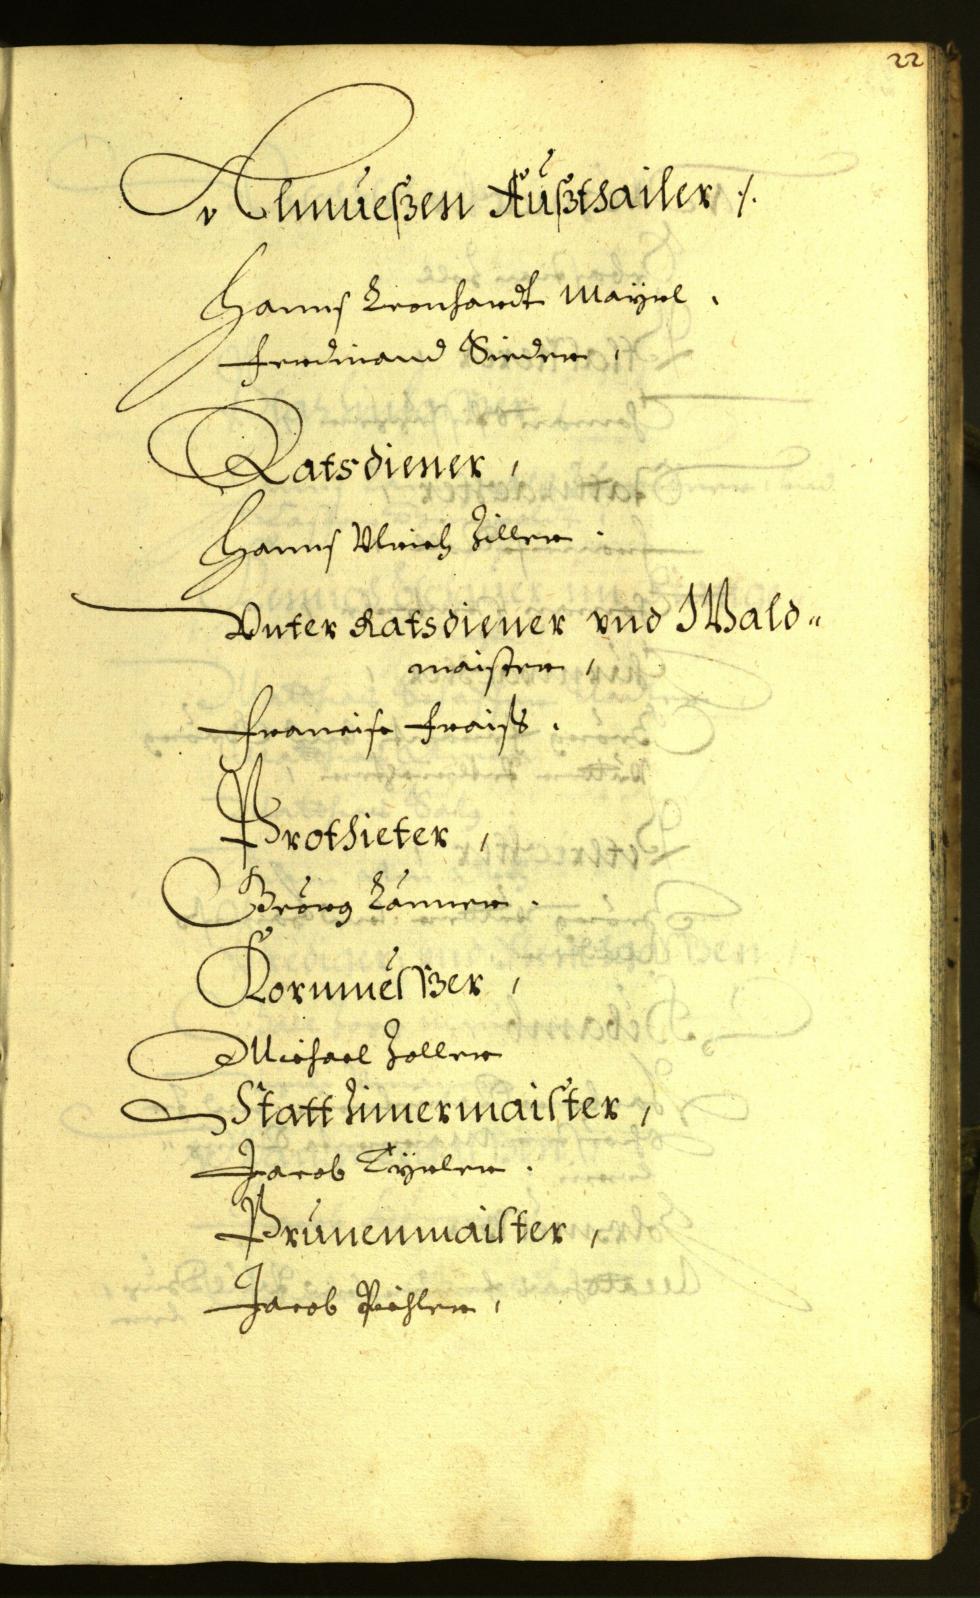 22
Almueßen Außthailer ./.
Hanns Leonhardt Mayrl.
Ferdinand Sieder,
Ratsdiener,
Hanns Ulrich Ziller.
Vnter Ratsdiener vnd Wald=
maister,
Francisc Fraiß.
Prothieter,
Geörg Lanner.
Kornmesßer,
Michael Zoller
Statt Zimermaister,
Jacob
Prunenmaister,
Jacob Pichler,